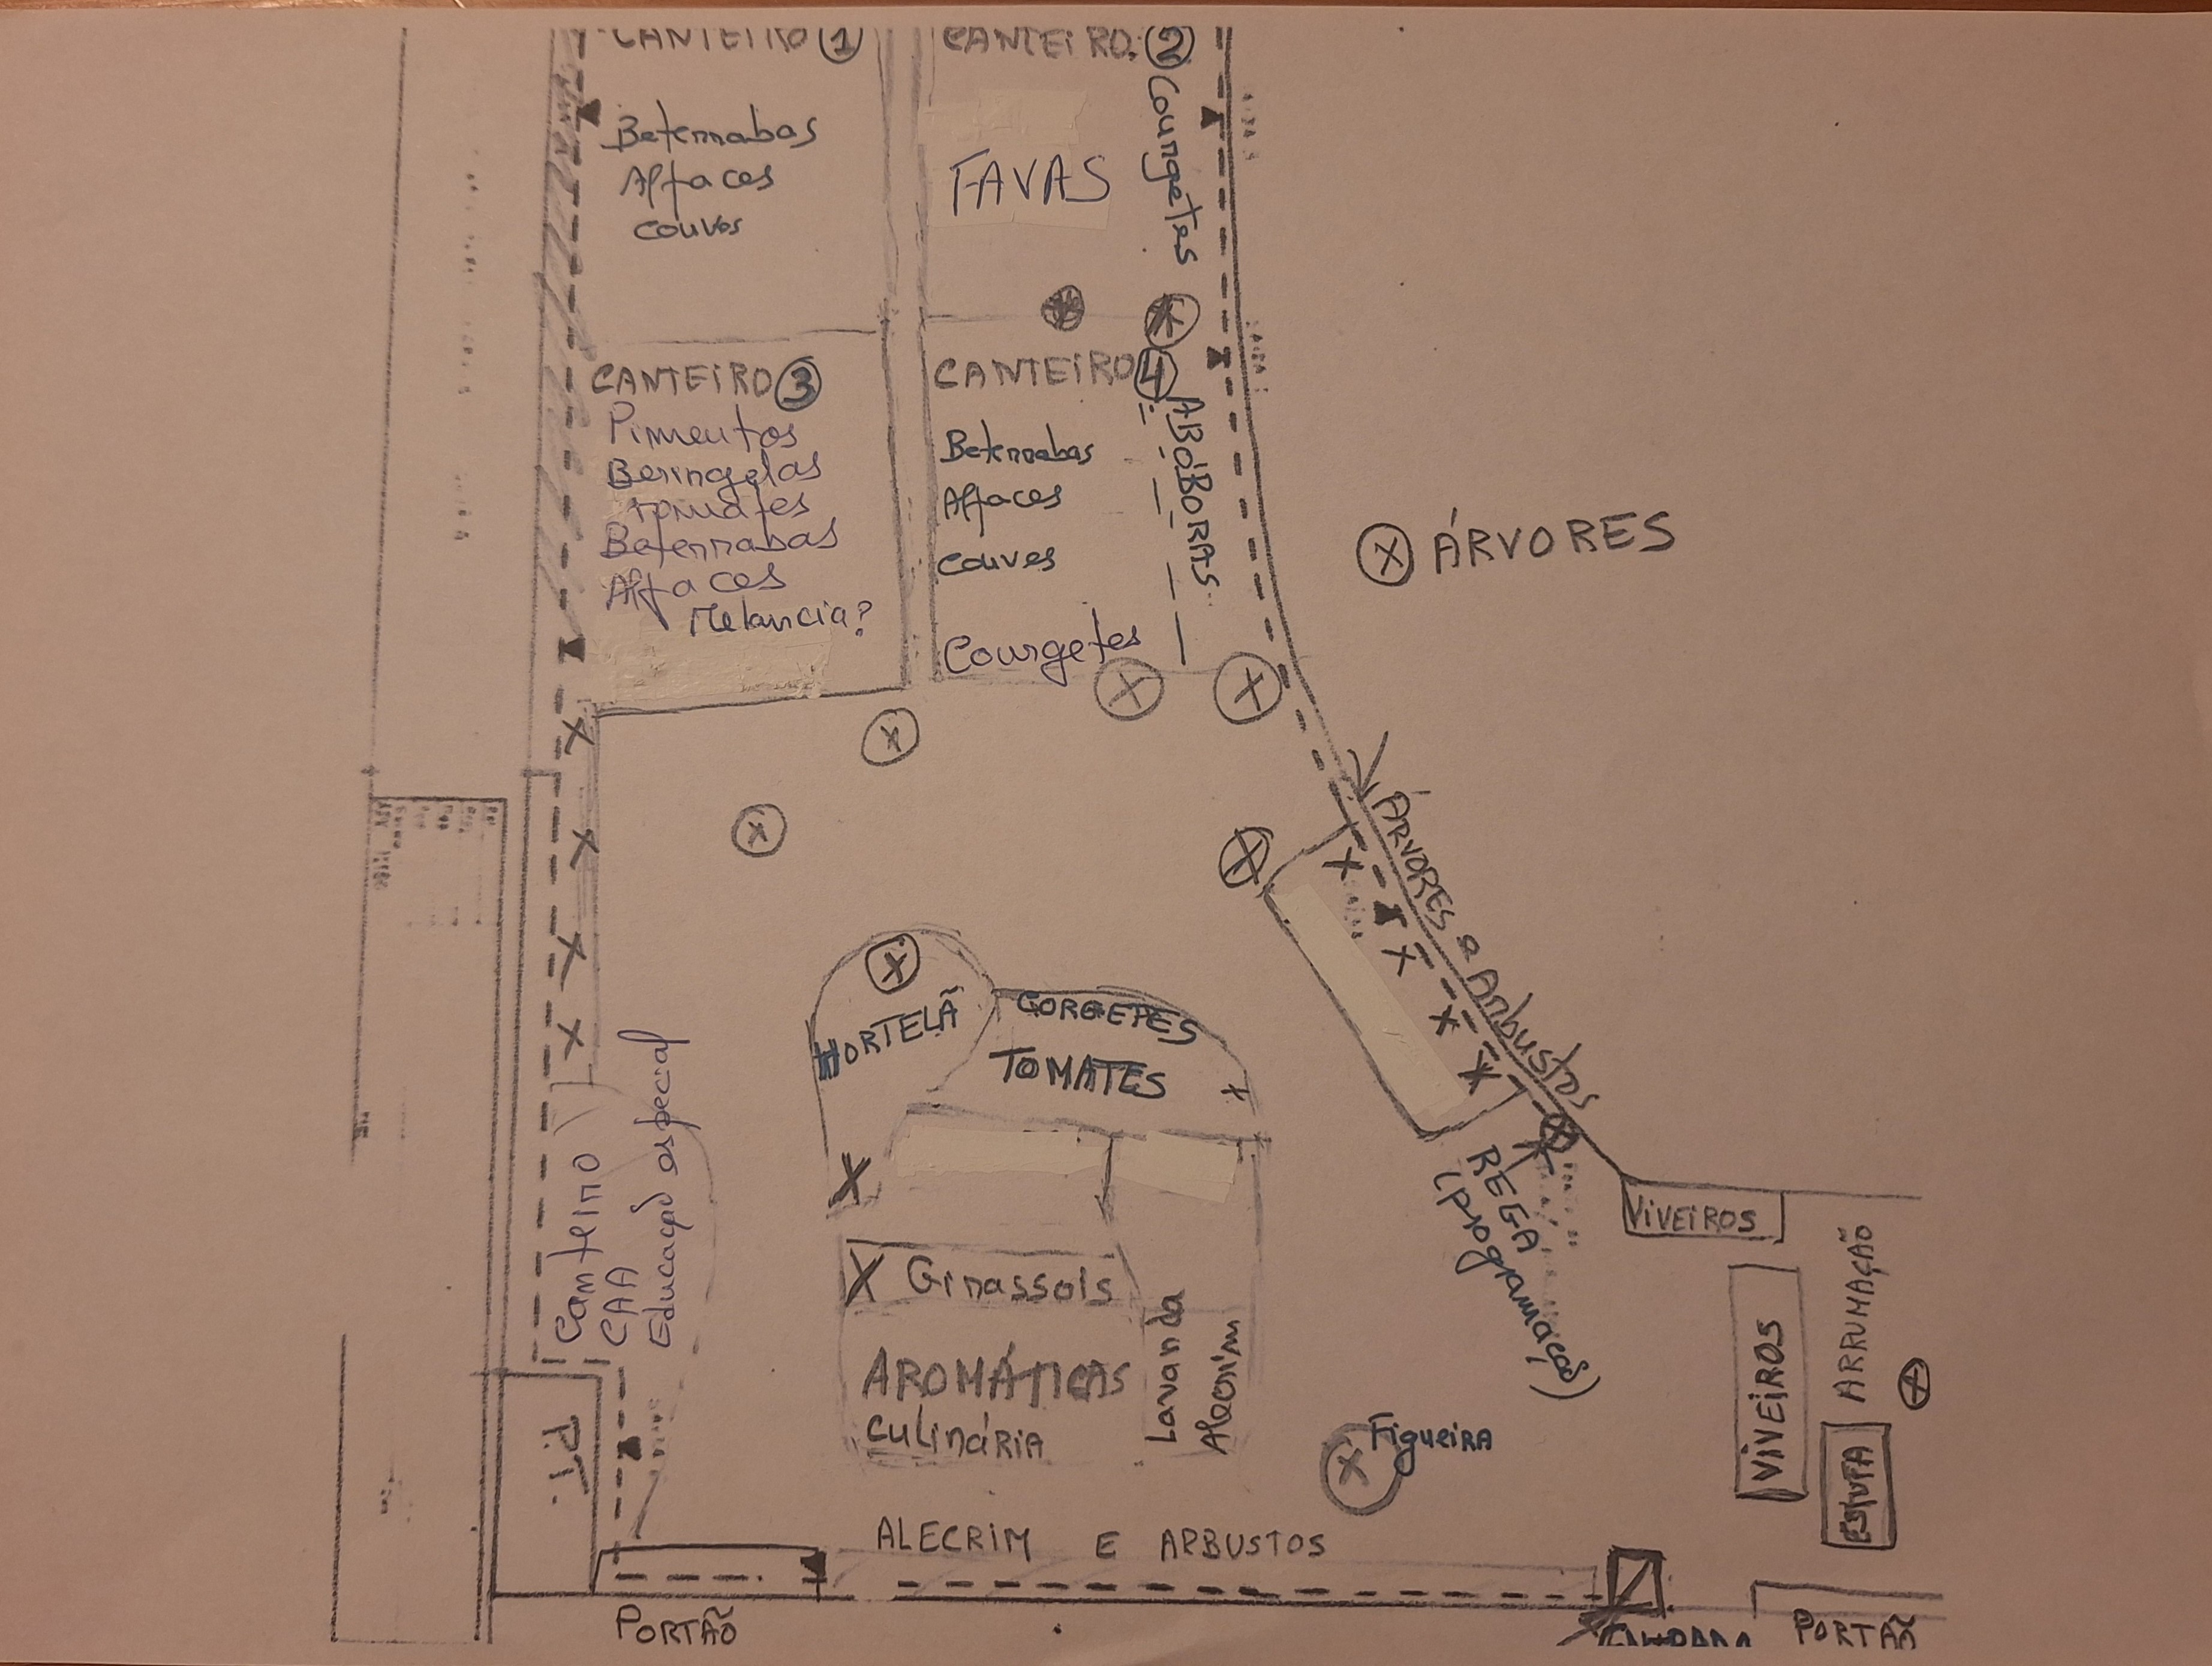 CANTEIRO 1
Beterrabas
Alfaces
couves
CANTEIRO. 2
Courgetes
FAVAS
CANTEIRO 3
Pimentos
Beringelas
Tomates
Beterrabas
Alfaces
Melancia?
CANTEIRO 4
ABÓBORAS
Beterrabas
Alfaces
couves
Courgetes
X ÁRVORES
ÁRVORES e Arbustos
HORTELÃ
CORGETES
TOMATES
Canteiro
CAA
Educação especial
REGA
(programação)
VIVEIROS
ARRUMAÇÃO
VIVEIROS
ESTUFA
X Girassois
AROMÁTICAS
CULINÁRIA
Lavanda
Alecrim
Figueira
ALECRIM E ARBUSTOS
PORTÃO
PORTÃO